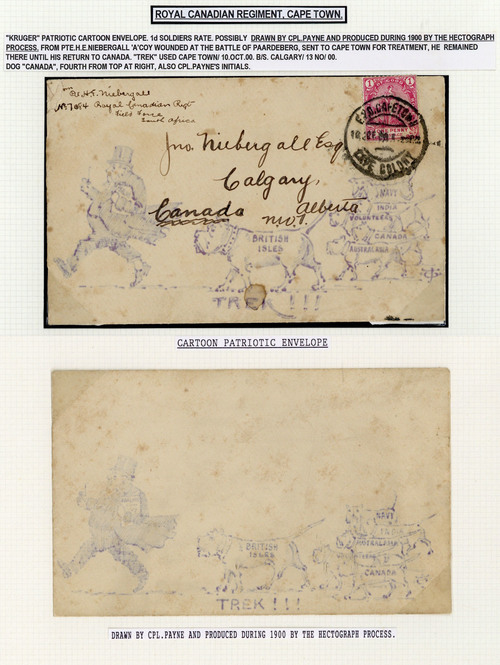 ROYAL CANADIAN REGIMENT, CAPE TOWN.
"KRUGER" PATRIOTIC CARTOON ENVELOPE. 1d SOLDIERS RATE. POSSIBLY DRAWN BY CPL.PAYNE AND PRODUCED DURING 1900 BY THE HECTOGRAPH
PROCESS. FROM PTE.H.E.NIEBERGALL 'A'COY WOUNDED AT THE BATTLE OF PAARDEBERG, SENT TO CAPE TOWN FOR TREATMENT, HE REMAINED
THERE UNTIL HIS RETURN TO CANADA. "TREK" USED CAPE TOWN/ 10.OCT.00. B/S. CALGARY/ 13 NO/ 00.
DOG "CANADA", FOURTH FROM TOP AT RIGHT, ALSO CPL.PAYNE'S INITIALS.
Niebergall
Royal Canadian Regt
Field Force
South Africa
ONE PENNY
CAPE COLONY
Jno. Niebergall Esq
Calgary,
Alberta
Canada
NWT.
NAVY
INDIA
VOLUNTEERS
CANADA
AUSTRALASIA
BRITISH
ISLES
TREK!!!
CARTOON PATRIOTIC ENVELOPE
NAVY
INDIA
BRITISH
ISLES
CANADA
TREK!!!
DRAWN BY CPL.PAYNE AND PRODUCED DURING 1900 BY THE HECTOGRAPH PROCESS.